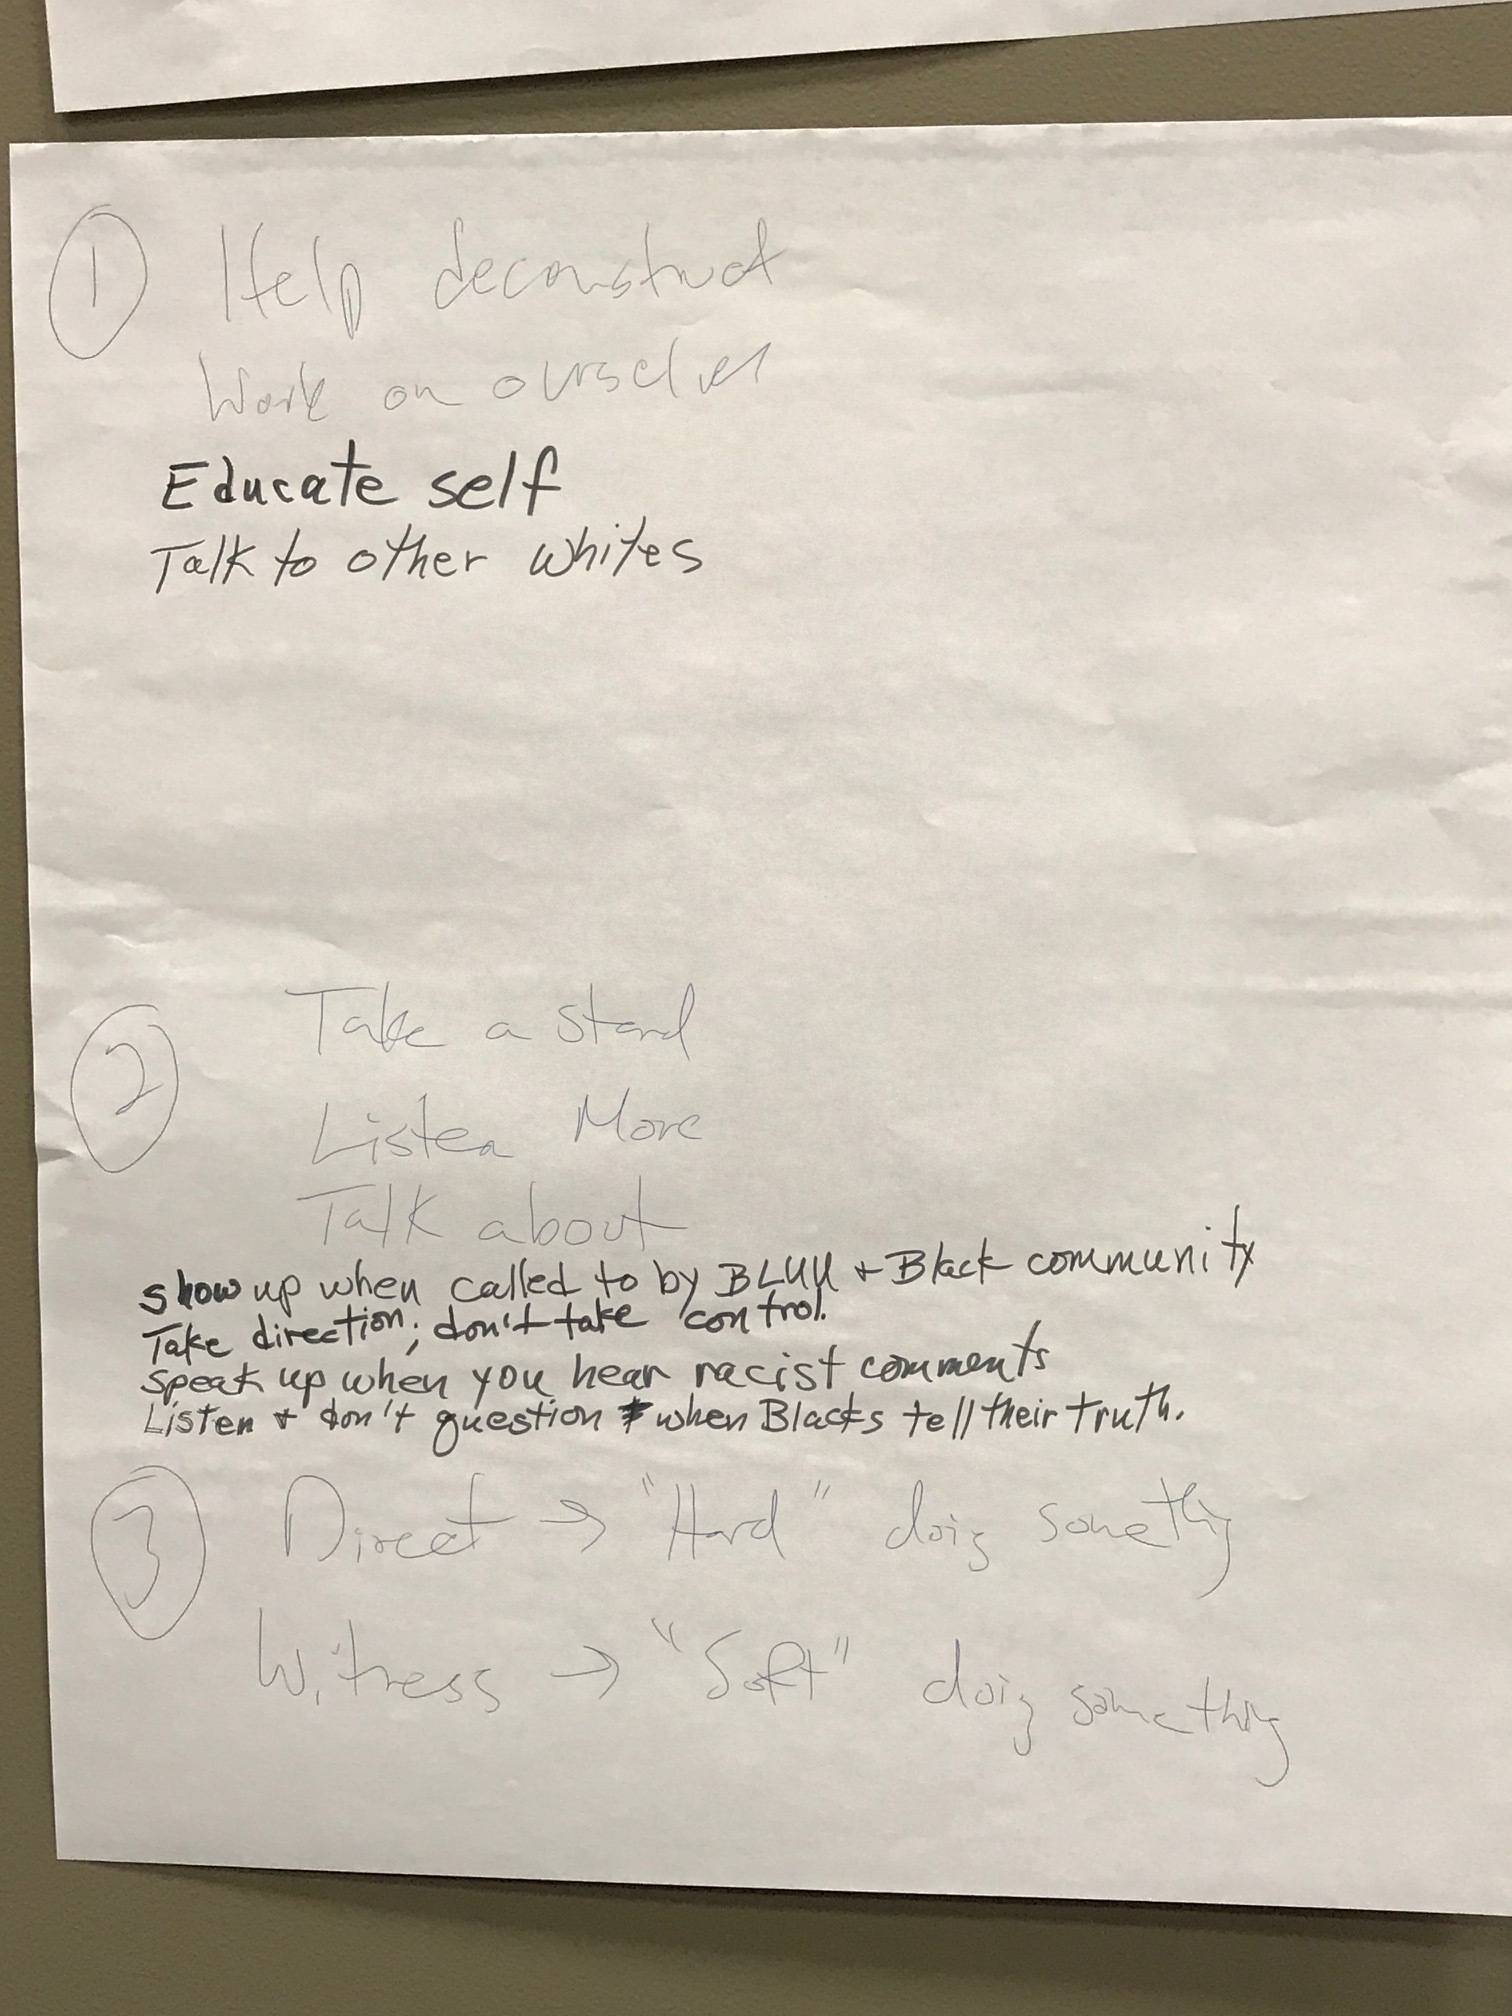 ① Help deconstruct
Work on ourselves
Educate self
Talk to other whites
② Take a stand
Listen More
Talk about
show up when called to by BLUU + Black community
Take direction; don't take control.
Speak up when you hear racist comments
Listen + don't question when Blacks tell their truth.
③ Direct → "Hard" doing something
Witness → "Soft" doing something